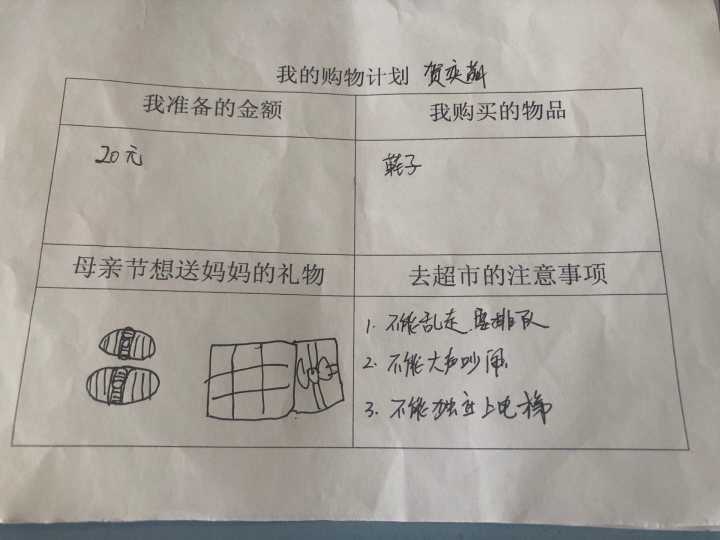 我的购物计划 贺奕
我准备的金额
我购买的物品
20元
鞋子
母亲节想送妈妈的礼物
去超市的注意事项
1. 不能乱走,要排队
2. 不能大声吵闹
3. 不能独立上电梯